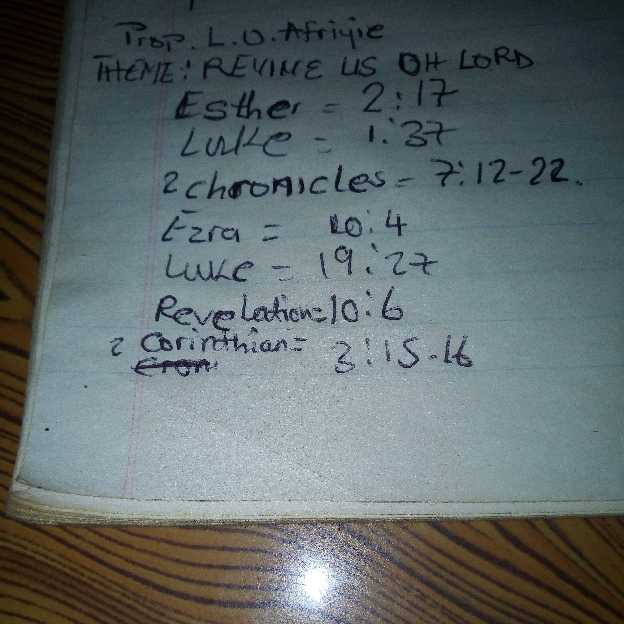 Prop. L.O. Afriyie
THEME: REVINE US OH LORD
Esther = 2:17
Luke = 1:37
2 chronicles = 7:12-22.
Ezra = 10:4
Luke = 19:27
Revelation=10:6
2 Corinthian= 3:15-16